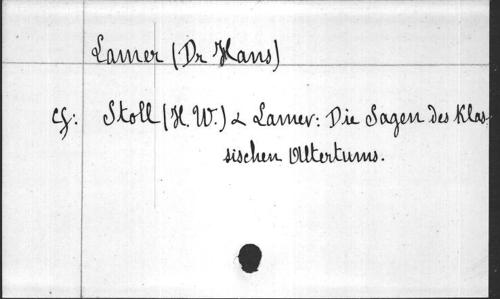 Lamer (Dr Hans)
cf: Stoll (H. W.) & Lamer: Die Sagen des Klas-
sischen Altertums.